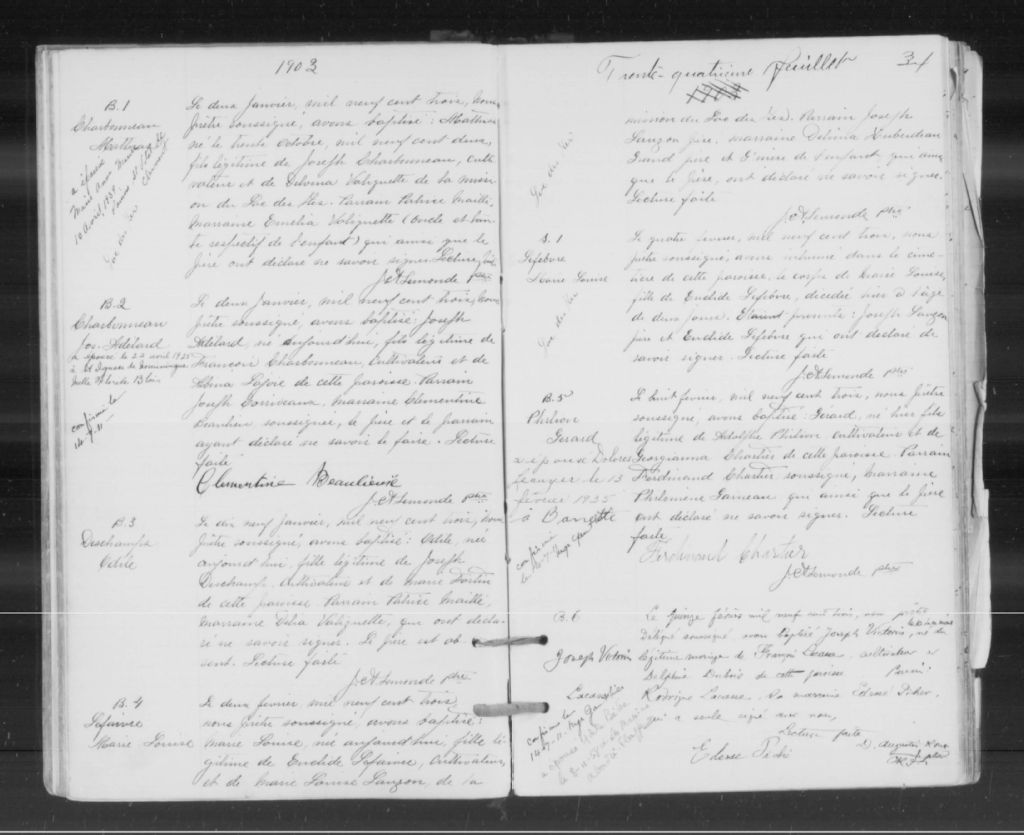 1903
B.1
Charbonneau
Mathias
a épousé
Marie Anna
10 avril 1939
Lac des Iles
Le deux Janvier, mil neuf cent trois, nous
prêtre soussigné, avons baptisé: Mathias
né le trente Octobre, mil neuf cent deux,
fils légitime de Joseph Charbonneau, Culti
vateur et de Delvina Valiquette de la missi
on du Lac des Iles. Parrain Patrice Maillé,
Marraine Emelia Valiquette (Oncle et tan
te respectif de l'enfant) qui ainsi que le
père ont déclaré ne savoir signer. Lecture faite
J.A. Lemonde ptre
B.2
Charbonneau
Jos. Adélard
a épousé le 22 avril 1925
à St Ignace de Nominingue
Melle
confirmé le
14-7-11
Le deux Janvier, mil neuf cent trois, nous
prêtre soussigné, avons baptisé: Joseph
Adélard, né aujourd'hui, fils légitime de
François Charbonneau, Cultivateur et de
Lafore de cette paroisse. Parrain
Joseph Doriveaux, Marraine Clementine
Beaulieu, soussignée, le père et le parrain
ayant déclaré ne savoir le faire. Lecture
faite
Clementine Beaulieux
J.A. Lemonde ptre
B.3
Deschamps
Odile
Le dix neuf Janvier, mil neuf cent trois, nous
prêtre soussigné, avons baptisé: Odile, née
aujourd'hui, fille légitime de Joseph
Deschamps, Cultivateur et de Marie Fortin
de cette paroisse. Parrain Patrice Maillé,
Marraine Delia Valiquette, qui ont décla
ré ne savoir signer. Le père est ab
sent. Lecture faite
J.A. Lemonde ptre
B.4
Lefaivre
Marie Louise
Le deux février, mil neuf cent trois,
nous prêtre soussigné, avons baptisé:
Marie Louise, née aujourd'hui, fille lé
gitime de Euclide Lefaivre, Cultivateur,
et de Marie Louise Lauzon, de la
Trente-quatrième feuillet
34
1904
Lac des Iles
mission du Lac des Iles. Parrain Joseph
Lauzon père, marraine Delvina Huberdeau
Grand père et G'mère de l'enfant qui ainsi
que le père, ont déclaré ne savoir signer.
Lecture faite
J.A. Lemonde ptre
S.1
Lefebvre
Marie Louise
Lac des Iles
Le quatre février, mil neuf cent trois, nous
prêtre soussigné, avons inhumé dans le cime-
tière de cette paroisse, le corps de Marie Louise,
fille de Euclide Lefebvre, décédée hier à l'âge
de deux jours. Etaient présents: Joseph Lauzon
père et Euclide Lefebvre qui ont déclaré ne
savoir signer. Lecture faite
J.A. Lemonde ptre
B.5
Philion
Gerard
a épousé Dolores
le 13
février 1935
à
confirmé
le 14-7-11
Le huit février, mil neuf cent trois, nous prêtre
soussigné, avons baptisé: Gerard, né hier fils
légitime de Adolphe Philion Cultivateur et de
Georgianna Chartier de cette paroisse. Parrain
Ferdinand Chartier soussigné, Marraine
Philomene Garneau qui ainsi que le père
ont déclaré ne savoir signer. Lecture
faite
Ferdinand Chartier
J.A. Lemonde ptre
B.6
Joseph Victorin
confirmé le
14-7-11
a épousé
le 8-11-
Le quinze février mil neuf cent trois, nous prêtre
délégué soussigné avons baptisé Joseph Victorin, né du
légitime mariage de François, cultivateur et
Delphine Dubois de cette paroisse Parrain
Rodrigue, la marraine
qui a seule signé avec nous,
Lecture faite